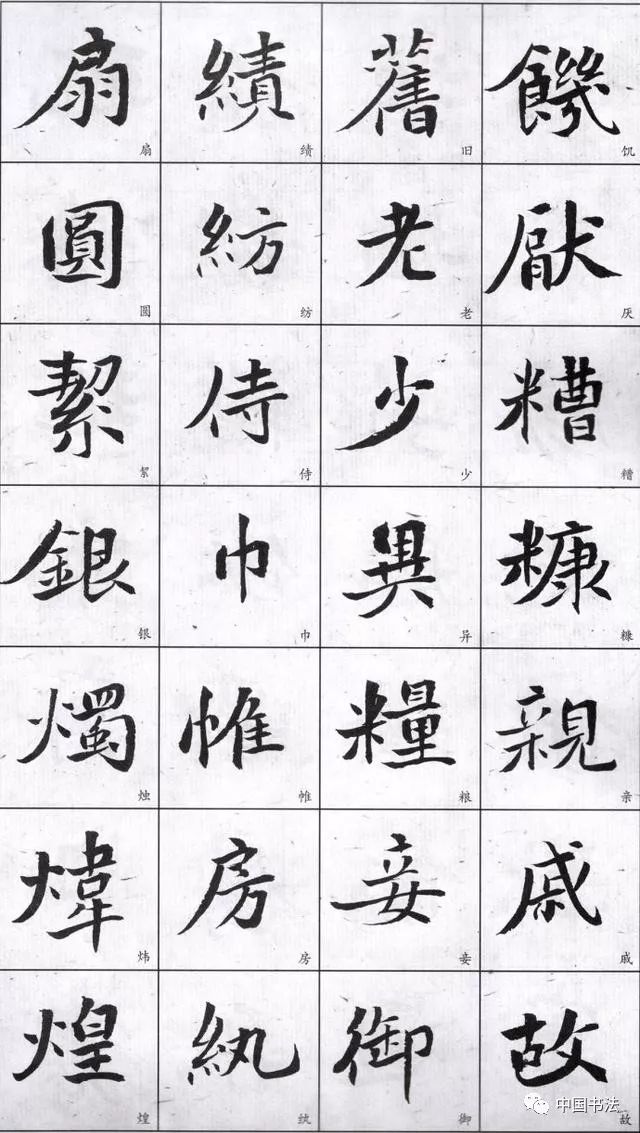 饑厭糟糠親戚故
饥厌糟糠亲戚故
舊老少異糧妾御
旧老少异粮妾御
績紡侍巾帷房紈
绩纺侍巾帷房纨
扇圓絜銀燭煒煌
扇圆絜银烛炜煌
中国书法